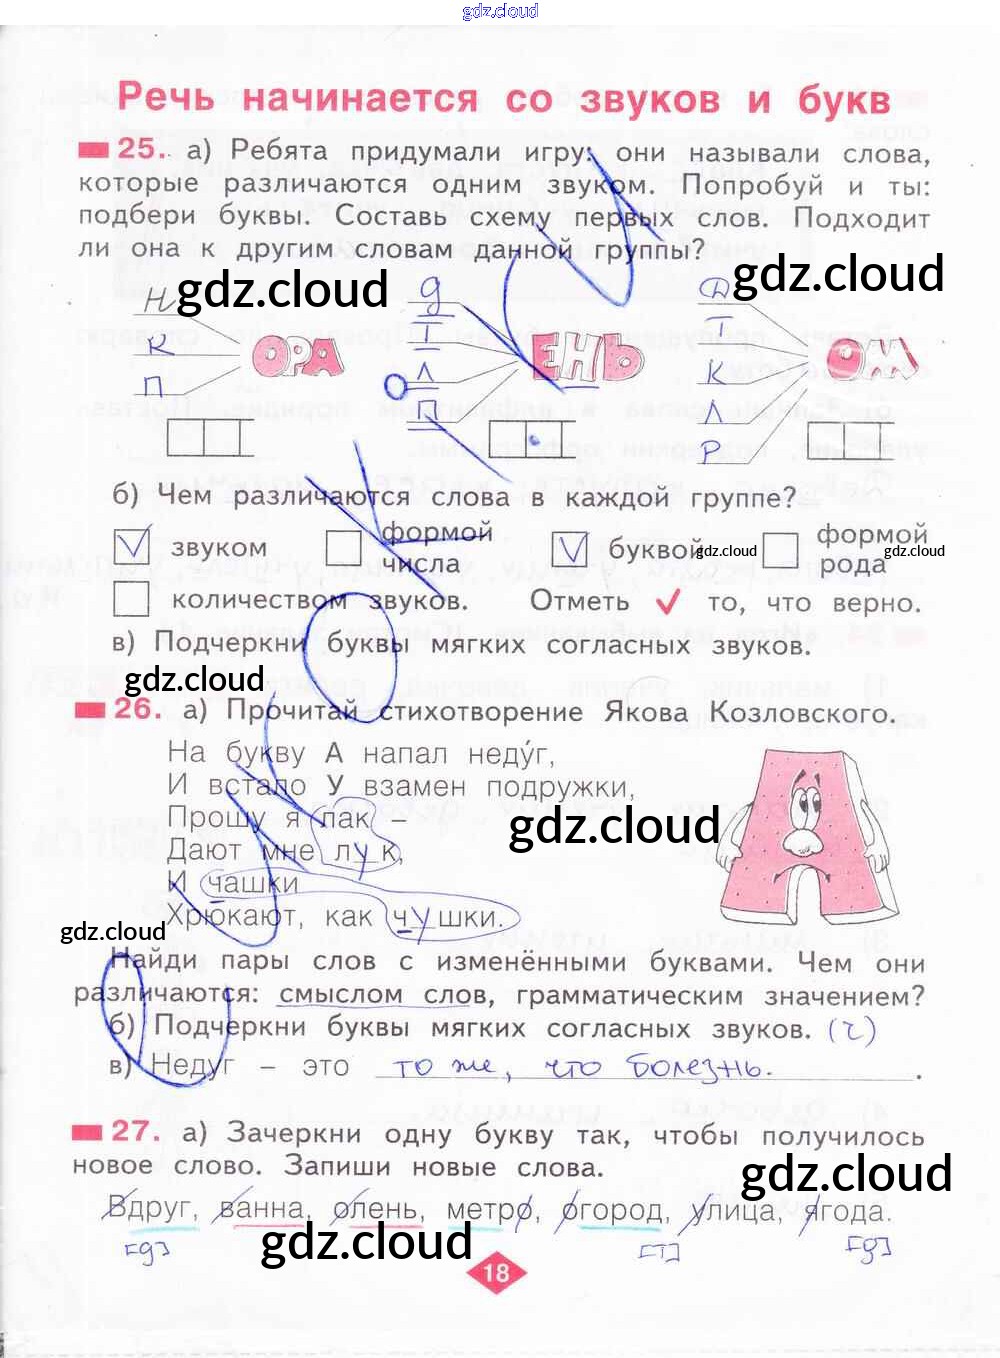 gdz.cloud
Речь начинается со звуков и букв
25. а) Ребята придумали игру: они называли слова,
которые различаются одним звуком. Попробуй и ты:
подбери буквы. Составь схему первых слов. Подходит
ли она к другим словам данной группы?
Н gdz.cloud д Д gdz.cloud
К ОРА Т ЕНЬ Т ОМ
П Л К
П Л
Р
б) Чем различаются слова в каждой группе?
звуком формой числа буквой gdz.cloud формой рода gdz.cloud
количеством звуков. Отметь ✓ то, что верно.
в) Подчеркни буквы мягких согласных звуков.
gdz.cloud
26. а) Прочитай стихотворение Якова Козловского.
На букву А напал неду́г,
И встало У взамен подружки,
Прошу я лак –
gdz.cloud
Дают мне лук,
И чашки
Хрюкают, как чушки.
gdz.cloud
Найди пары слов с изменёнными буквами. Чем они
различаются: смыслом слов, грамматическим значением?
б) Подчеркни буквы мягких согласных звуков. (ч)
в) Недуг – это то же, что болезнь.
27. а) Зачеркни одну букву так, чтобы получилось
новое слово. Запиши новые слова.
gdz.cloud
Вдруг, ванна, олень, метро, огород, улица, ягода.
[д] [т] [д]
gdz.cloud
18